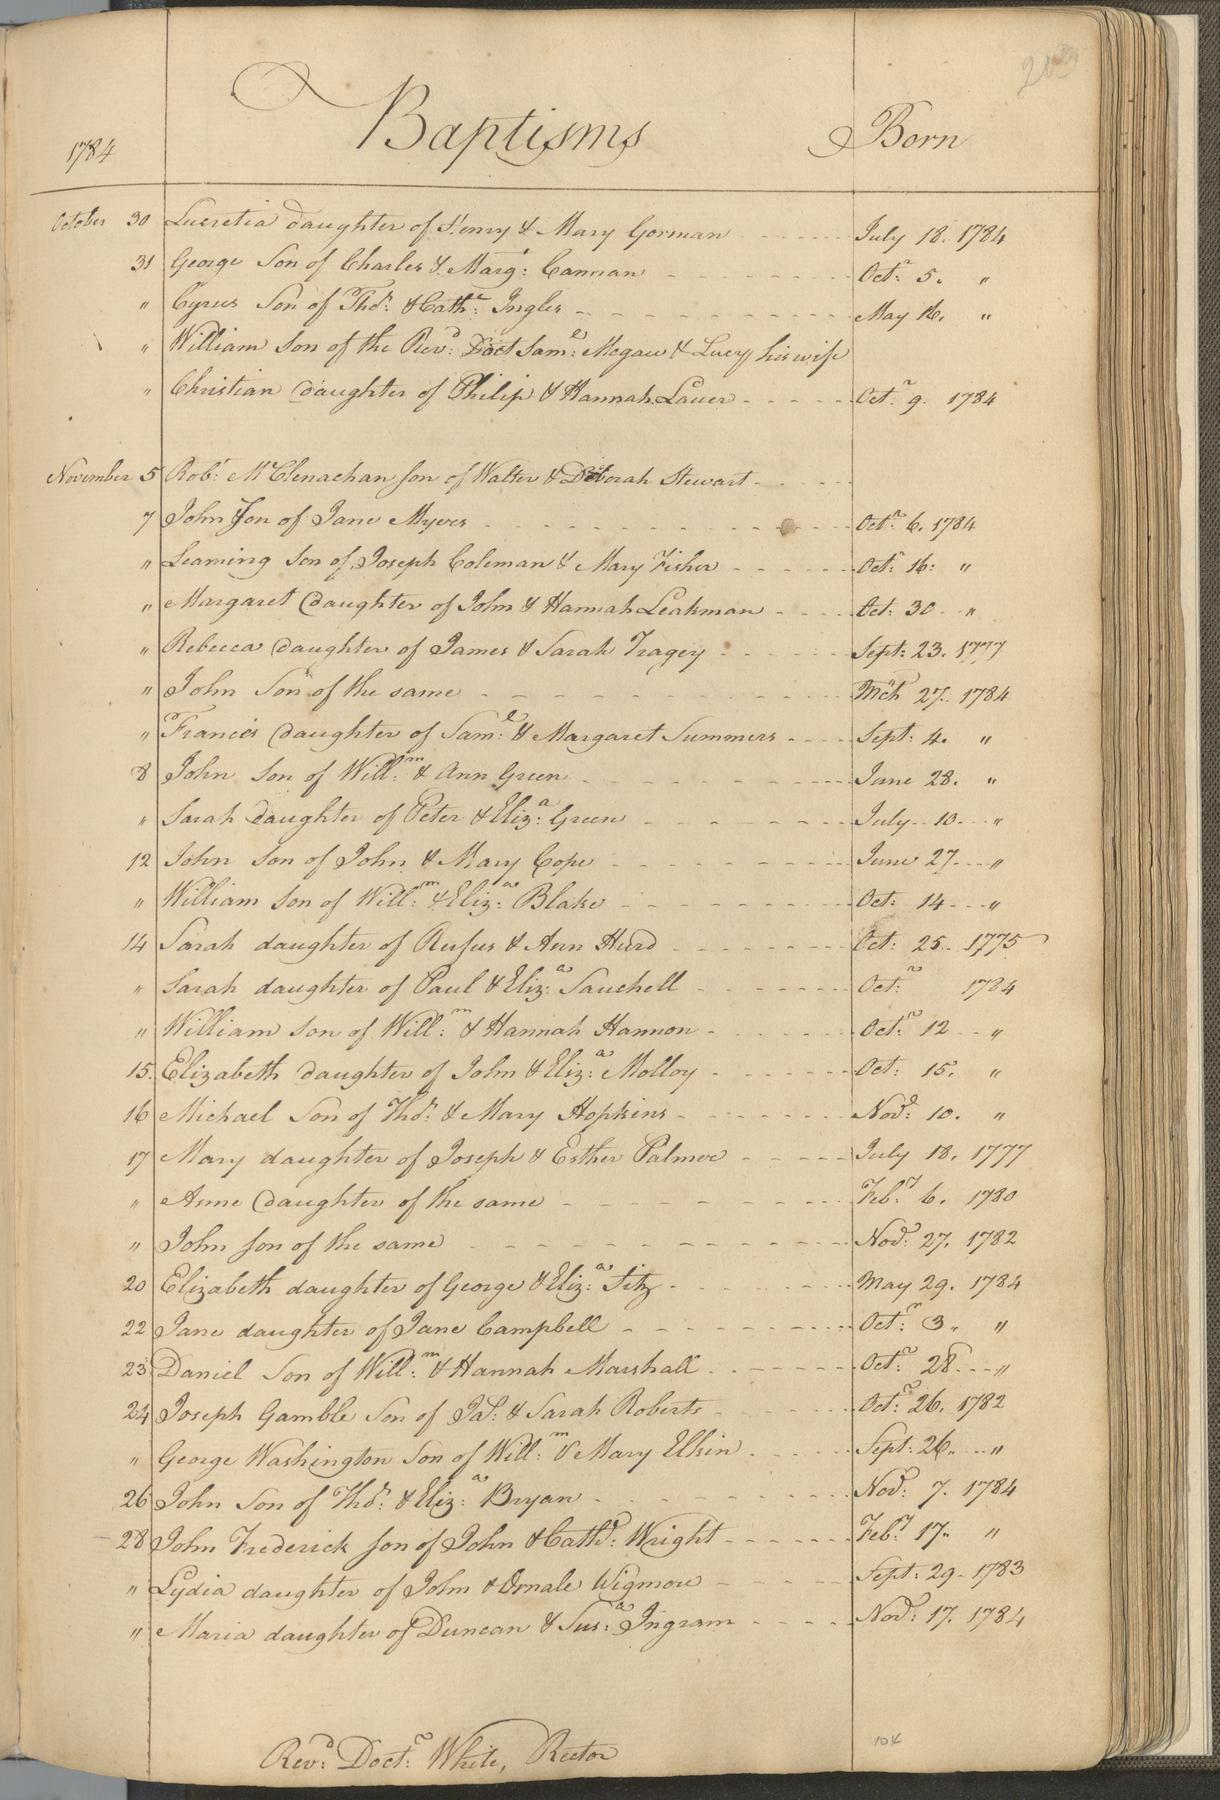 203
1784 Baptisms Born
October 30 Lucretia daughter of Henry & Mary Gorman July 18. 1784
31 George Son of Charles & Marg.t: Cannan Octr. 5. "
" Cyrus Son of Thos: & Cathe: Ingles May 16. "
" William Son of the Revd: Doct Saml: Magaw & Lucy his wife
" Christian daughter of Philip & Hannah Lauer Octr. 9. 1784
November 5 Robt: McClenachan son of Walter & Deborah Stewart
7 John Son of Jane Myers Octr. 6. 1784
" Leaming Son of Joseph Coleman & Mary Fisher Oct: 16: "
" Margaret daughter of John & Hannah Leakman Oct: 30 "
" Rebecca daughter of James & Sarah Tragey Sept: 23. 1777
" John Son of the same Mch 27. 1784
" Francis daughter of Saml: & Margaret Summers Sept: 4. "
8 John Son of Willm: & Ann Green June 28. "
" Sarah daughter of Peter & Eliza: Green July 10 "
12 John Son of John & Mary Cope June 27 "
" William Son of Willm: & Eliza: Blake Oct: 14 "
14 Sarah daughter of Rufus & Ann Hurd Oct: 25. 1775
" Sarah daughter of Paul & Eliza: Sauchell Octr: 1784
" William Son of Willm: & Hannah Hannon Octr: 12 "
15. Elizabeth daughter of John & Eliza: Molloy Oct: 15. "
16 Michael Son of Thos: & Mary Hopkins Nov: 10. "
17 Mary daughter of Joseph & Esther Palmer July 18. 1777
" Anne daughter of the same Feby: 6. 1780
" John son of the same Nov: 27. 1782
20 Elizabeth daughter of George & Eliza: Sitz May 29. 1784
22 Jane daughter of Jane Campbell Octr: 3. "
23 Daniel Son of Willm: & Hannah Marshall Octr: 28 "
24 Joseph Gamble Son of Jas: & Sarah Roberts Octr: 26. 1782
" George Washington Son of Willm: & Mary Elkin Sept: 26. "
26 John Son of Thos: & Eliza: Bryan Nov: 7. 1784
28 John Frederick son of John & Cath: Wright Feby: 17. "
" Lydia daughter of John & Ornale Wigmore Sept: 29. 1783
" Maria daughter of Duncan & Susa: Ingram Nov: 17. 1784
Revd: Doctr. White, Rector
104